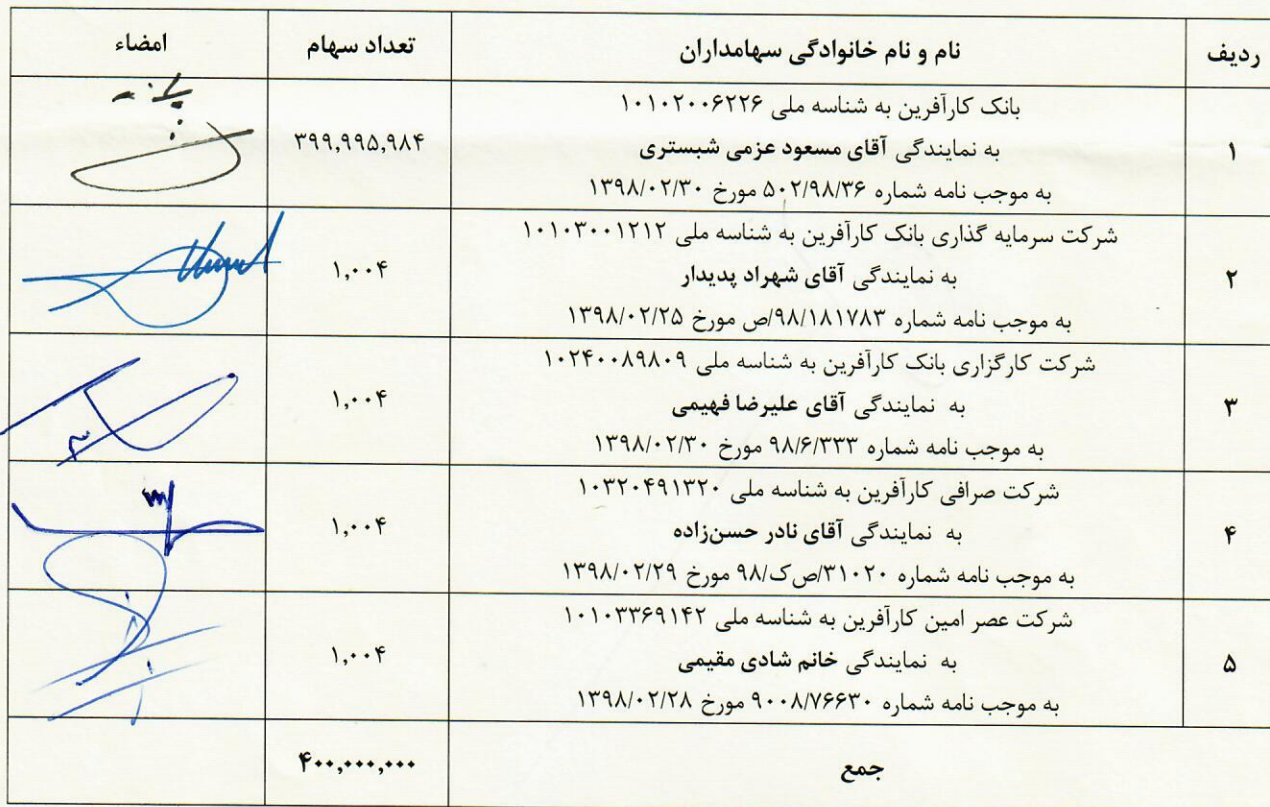 ردیف نام و نام خانوادگی سهامداران تعداد سهام امضاء
بانک کارآفرین به شناسه ملی ۱۰۱۰۲۰۰۶۲۲۶
۱ به نمایندگی آقای مسعود عزمی شبستری ۳۹۹,۹۹۵,۹۸۴
به موجب نامه شماره ۵۰۲/۹۸/۳۶ مورخ ۱۳۹۸/۰۲/۳۰
شرکت سرمایه گذاری بانک کارآفرین به شناسه ملی ۱۰۱۰۳۰۰۱۲۱۲
۲ به نمایندگی آقای شهراد پدیدار ۱,۰۰۴
به موجب نامه شماره ۹۸/۱۸۱۷۸۳/ص مورخ ۱۳۹۸/۰۲/۲۵
شرکت کارگزاری بانک کارآفرین به شناسه ملی ۱۰۲۴۰۰۸۹۸۰۹
۳ به نمایندگی آقای علیرضا فهیمی ۱,۰۰۴
به موجب نامه شماره ۹۸/۶/۳۳۳ مورخ ۱۳۹۸/۰۲/۳۰
شرکت صرافی کارآفرین به شناسه ملی ۱۰۳۲۰۴۹۱۳۲۰
۴ به نمایندگی آقای نادر حسن‌زاده ۱,۰۰۴
به موجب نامه شماره ۳۱۰۲۰/ص ک/۹۸ مورخ ۱۳۹۸/۰۲/۲۹
شرکت عصر امین کارآفرین به شناسه ملی ۱۰۱۰۳۳۶۹۱۴۲
۵ به نمایندگی خانم شادی مقیمی ۱,۰۰۴
به موجب نامه شماره ۹۰۰۸/۷۶۶۳۰ مورخ ۱۳۹۸/۰۲/۲۸
جمع ۴۰۰,۰۰۰,۰۰۰